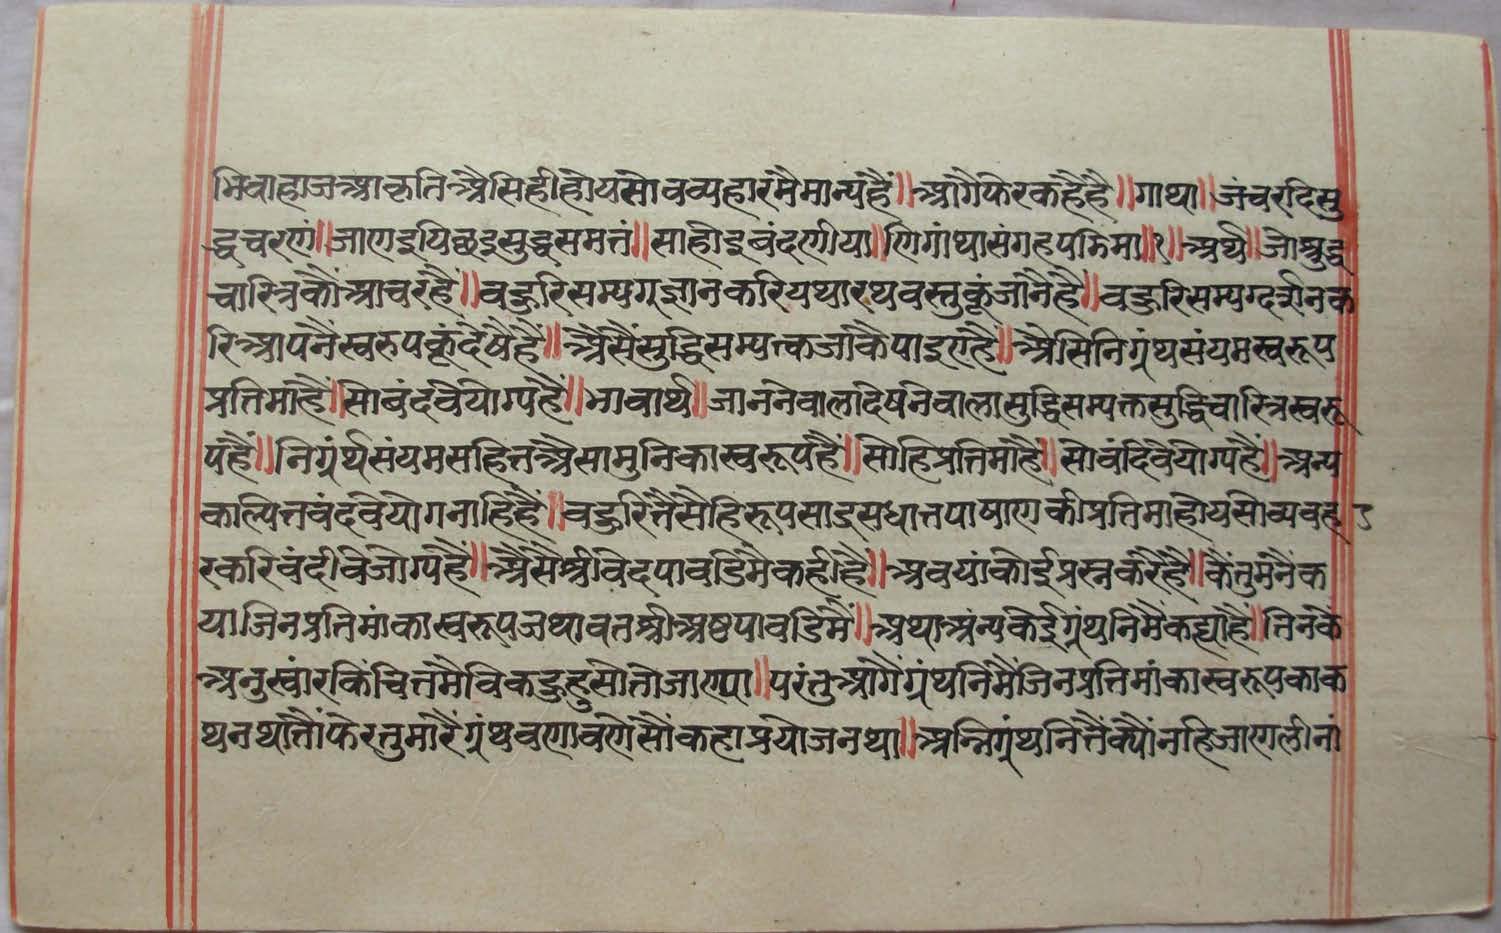 मिवाहाजआकृतिअैसिहीहोयसोवव्यहारमैमान्यहैं॥आगैफेरकहैहै॥गाथा॥जंचरदिसु
द्धचरणं॥जाणइपिछइसुद्धसमत्तं॥साहोइवंदणीया॥णिगांथासंगहपत्तिमा॥१॥अर्थ॥जोश्रुद्ध
चारित्रकौंआचरहै॥वहुरिसम्यग्ज्ञानकरियथारथवस्तुकूंजांनैहै॥वहुरिसम्यग्दर्शनक
रिआपनैस्वरुपकूंदेषैहैं॥अैसैंसुद्धिसम्यत्कजांकैपाइएहै॥अैसिनिग्रंथसंयमस्वरूप
प्रत्तिमांहै॥सोवंदवेयोग्यहै॥भावार्थ॥जाननेवालादेषनेवालासुद्धिसम्यक्तसुद्धिचारित्रस्वरू
पहैं॥निग्रंर्थसंयमसहित्तअैसामुनिकास्वरूपहैं॥सोहिप्रत्तिमांहै॥सोवंदिवेयोग्यहै॥अन्य
कल्पित्तवंदवेयोगनाहिहैं॥वहुरित्तैसैहिरूपसाइसधात्तपाषाणकीप्रत्तिमाहोयसोव्यवहा
रकरिवंदीवेजोग्यहै॥अैसैश्रीवेदपावडिमैकहीहै॥अवयांकोईप्रस्नकरैहै॥केतुमनैंक
याजिनप्रत्तिमांकास्वरूपजथावतश्रीअष्टपावडिमैं॥अथाअंन्यकेईग्रंथनिमैंकह्योहै॥तिनकें
अनुस्वांरकिंचित्तमैविकहुहुसोतोजाण्या॥परंतुआगैग्रंथनिमैंजिनप्रत्तिमांकास्वरूपकाक
थनथातौंफेरतुमारैग्रंथवणावणेसौंकहाप्रयोजनथा॥अन्निग्रंथनित्तैंक्यौंनहिजाणलीनां